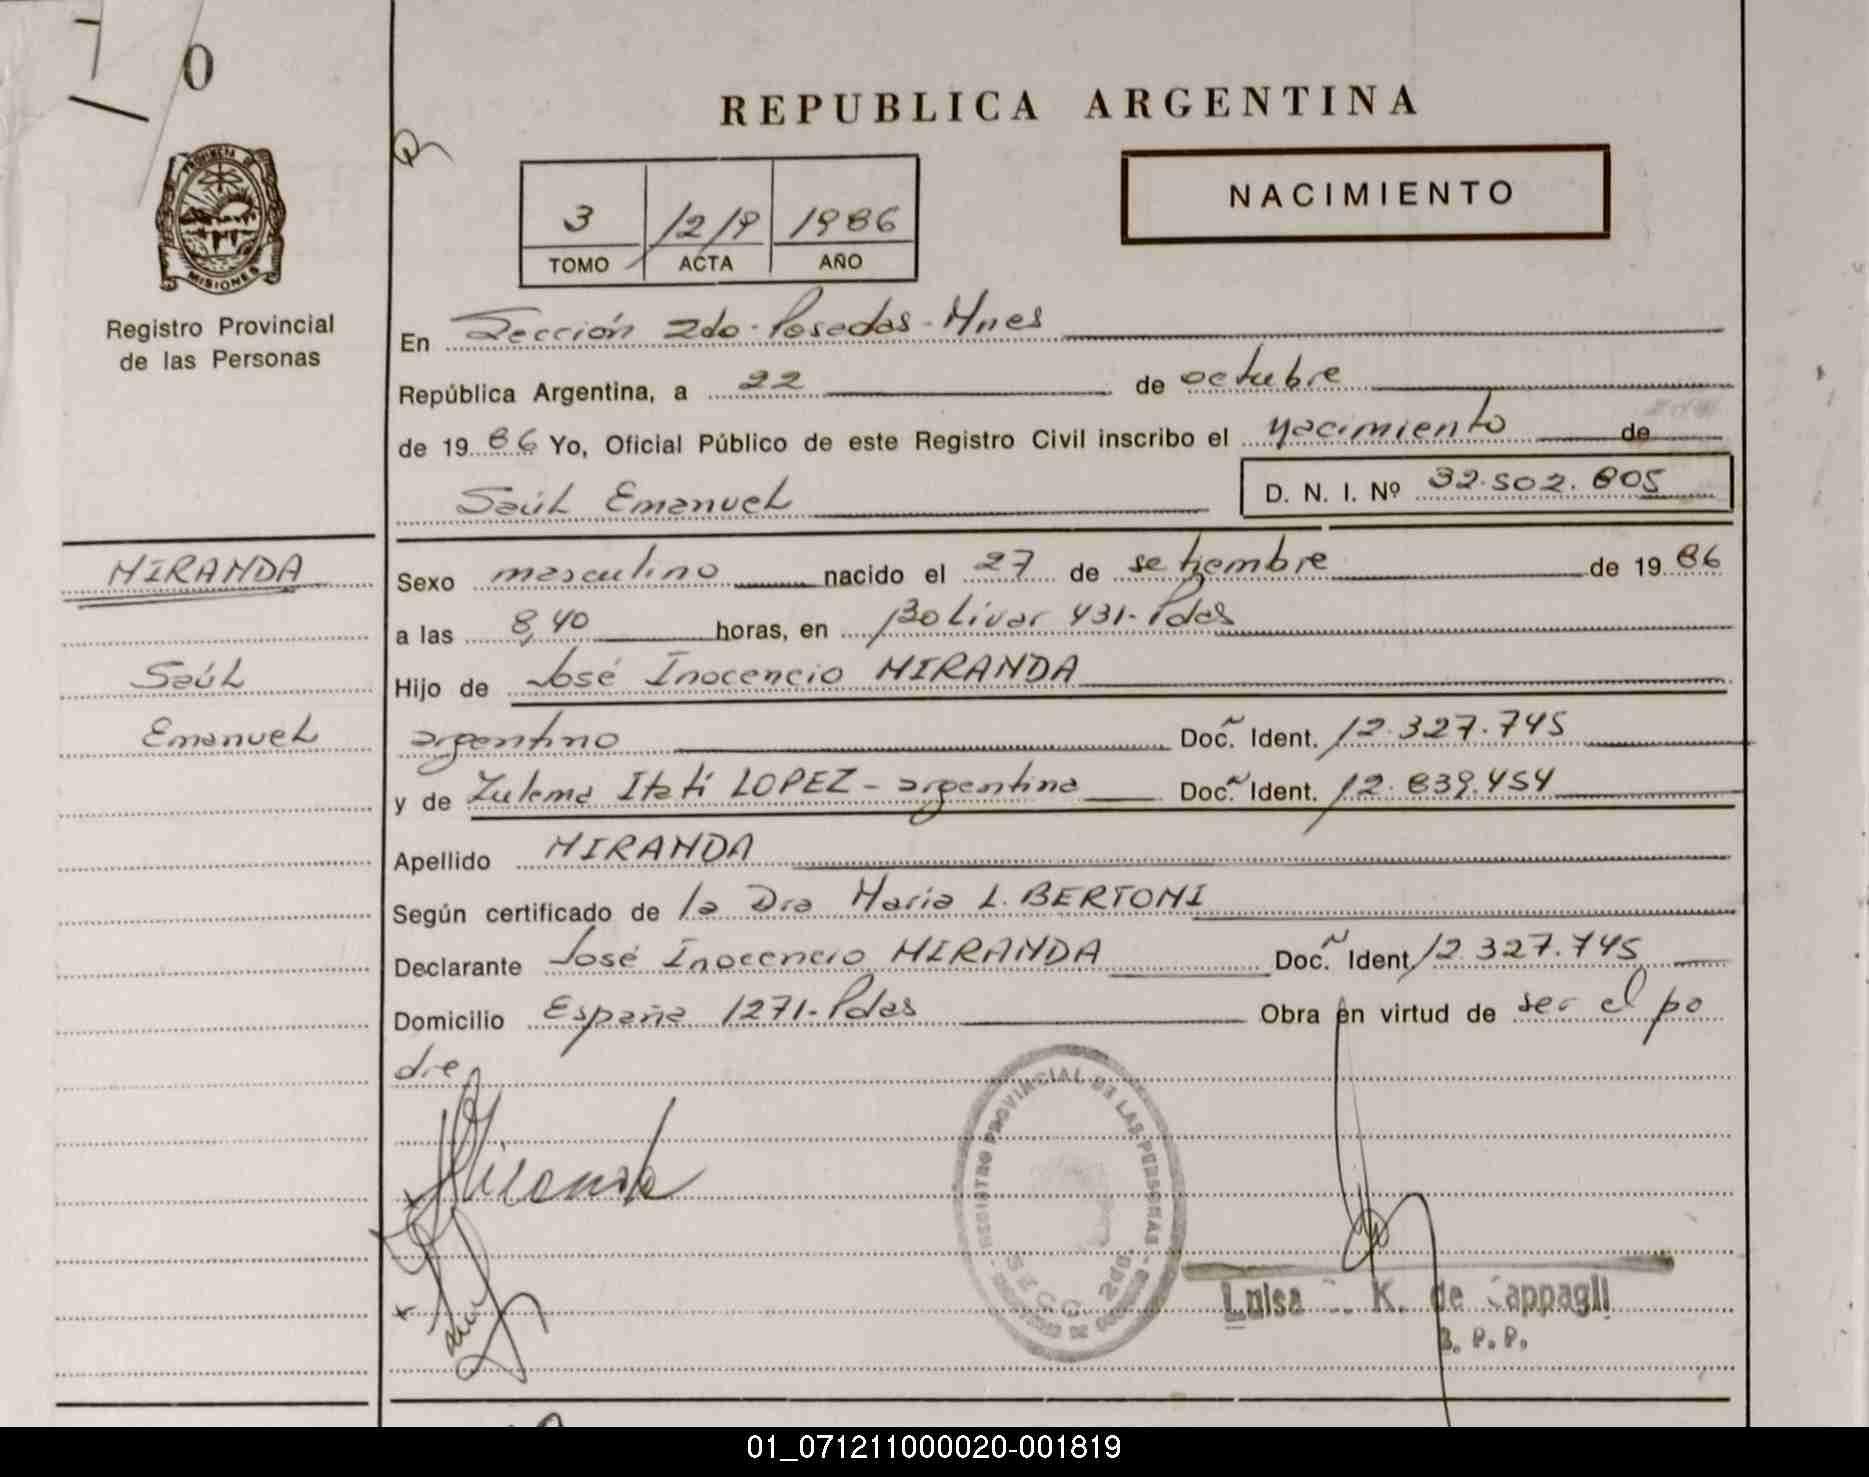 0
REPUBLICA ARGENTINA
NACIMIENTO
PROVINCIA DE
MISIONES
3 1219 1986
TOMO ACTA AÑO
Registro Provincial
de las Personas
En Sección 2do. Posadas - Mnes
República Argentina, a 22 de octubre
de 1986 Yo, Oficial Público de este Registro Civil inscribo el Nacimiento de
Saúl Emanuel D. N. I. Nº 32.502.805
MIRANDA
Saúl
Emanuel
Sexo masculino nacido el 27 de setiembre de 1986
a las 8,40 horas, en Bolivar 431- Pdas
Hijo de José Inocencio MIRANDA
argentino Doc. Ident. 12.327.745
y de Zulema Itatí LOPEZ - argentina Doc. Ident. 12.839.454
Apellido MIRANDA
Según certificado de la Dra María L. BERTONI
Declarante José Inocencio MIRANDA Doc. Ident. 12.327.745
Domicilio España 1271- Pdas Obra en virtud de ser el pa
dre
Miranda
REGISTRO PROVINCIAL DE LAS PERSONAS
SECC. 2da.
Luisa K. de Cappagli
01_071211000020-001819